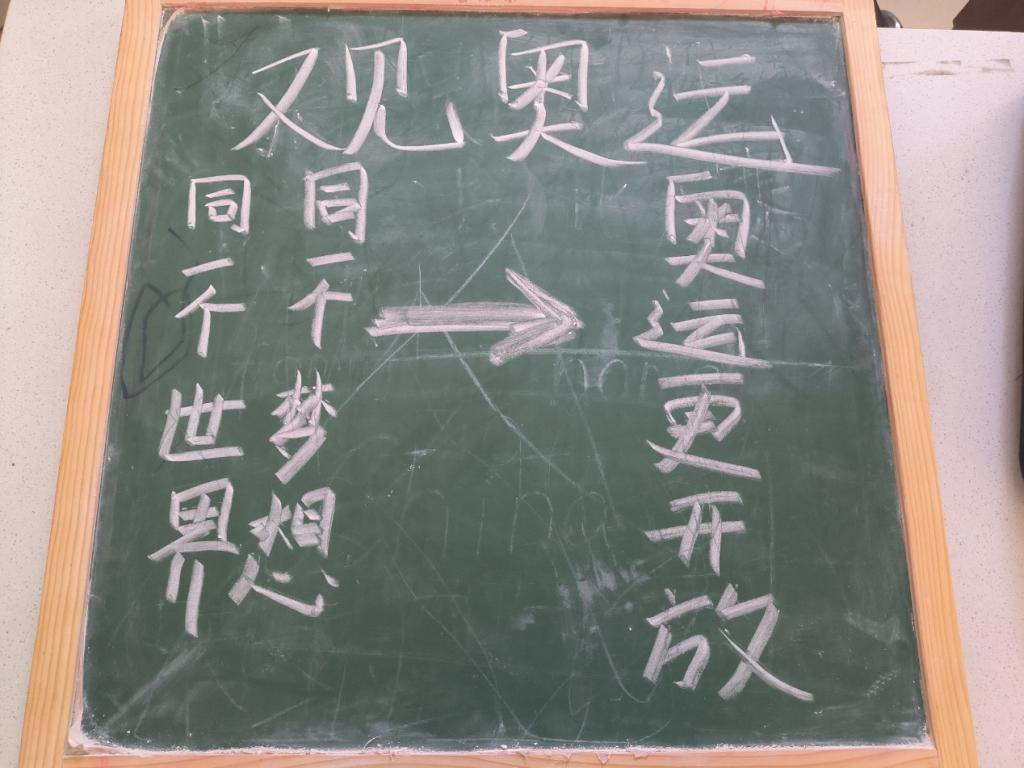 观奥运
同一个世界
同一个梦想
奥运更开放